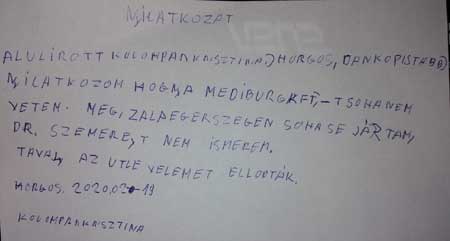 NYILATKOZAT
ALULIROTT KOLOMPARKRISZTINA.) HORGOS, DANKOPISTA
NYILATKOZOM HOGY A MEDIBURGKFT,-T SOHANEM
VETEM. MEG, ZALAEGERSZEGEN SOHASE JÁRTAM,
DR. SZEMERE,T NEM ISMEREM.
TAVALY AZ UTLE VELEMET ELLOPTÁK.
HORGOS, 2020,02-19
KOLOMPARKRISZTINA